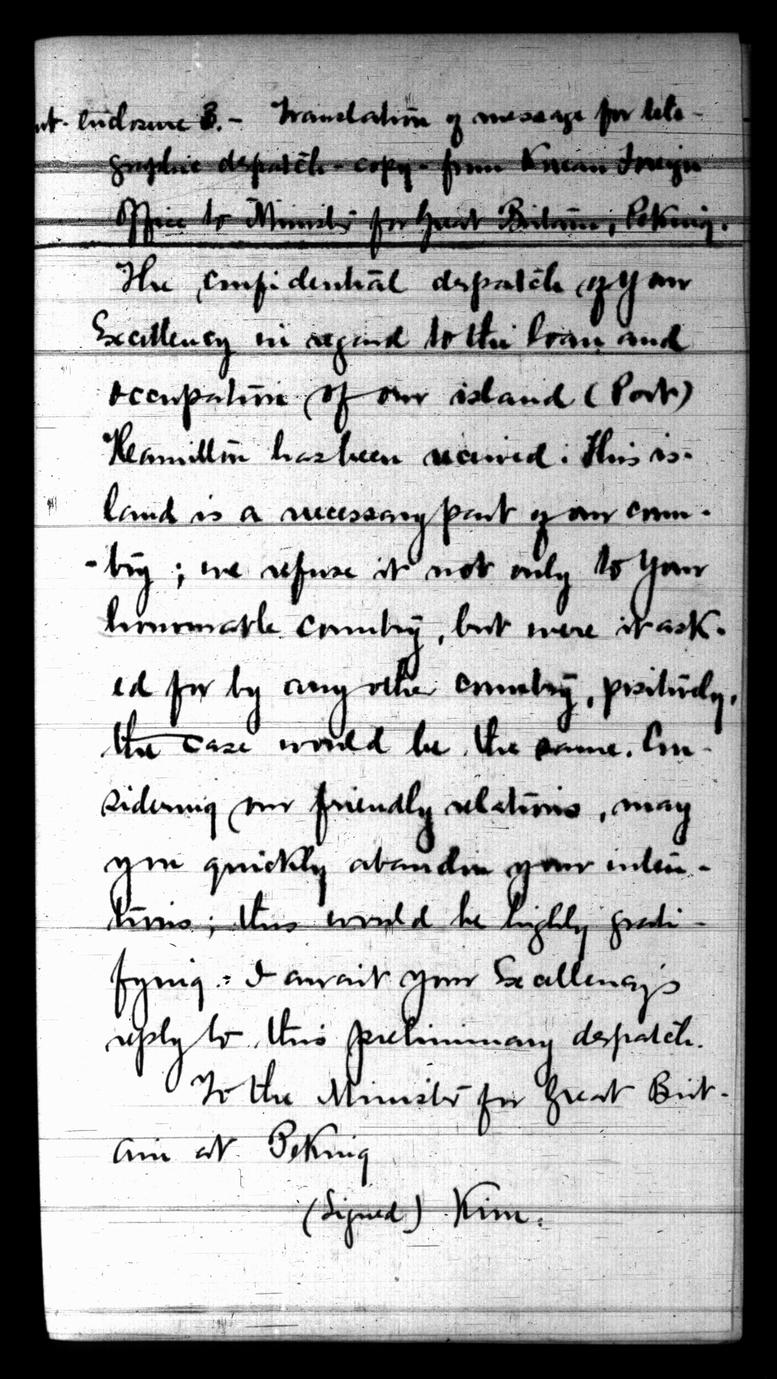 Enclosure 3. - Translation of message for tele-
graphic despatch - copy - from Korean Foreign
Office to Minister for Great Britain, Peking.
The confidential despatch of your
Excellency in regard to the loan and
occupation of our island (Port)
Hamilton has been received. This is-
land is a necessary part of our coun-
-try; we refuse it not only to your
honorable country, but were it ask-
ed for by any other country, positively,
the case would be the same. Con-
sidering our friendly relations, may
you quickly abandon your inten-
tions; this would be highly grati-
fying. - I await your Excellency's
reply to this preliminary despatch.
To the Minister for Great Brit-
ain at Peking
(Signed) Kim.